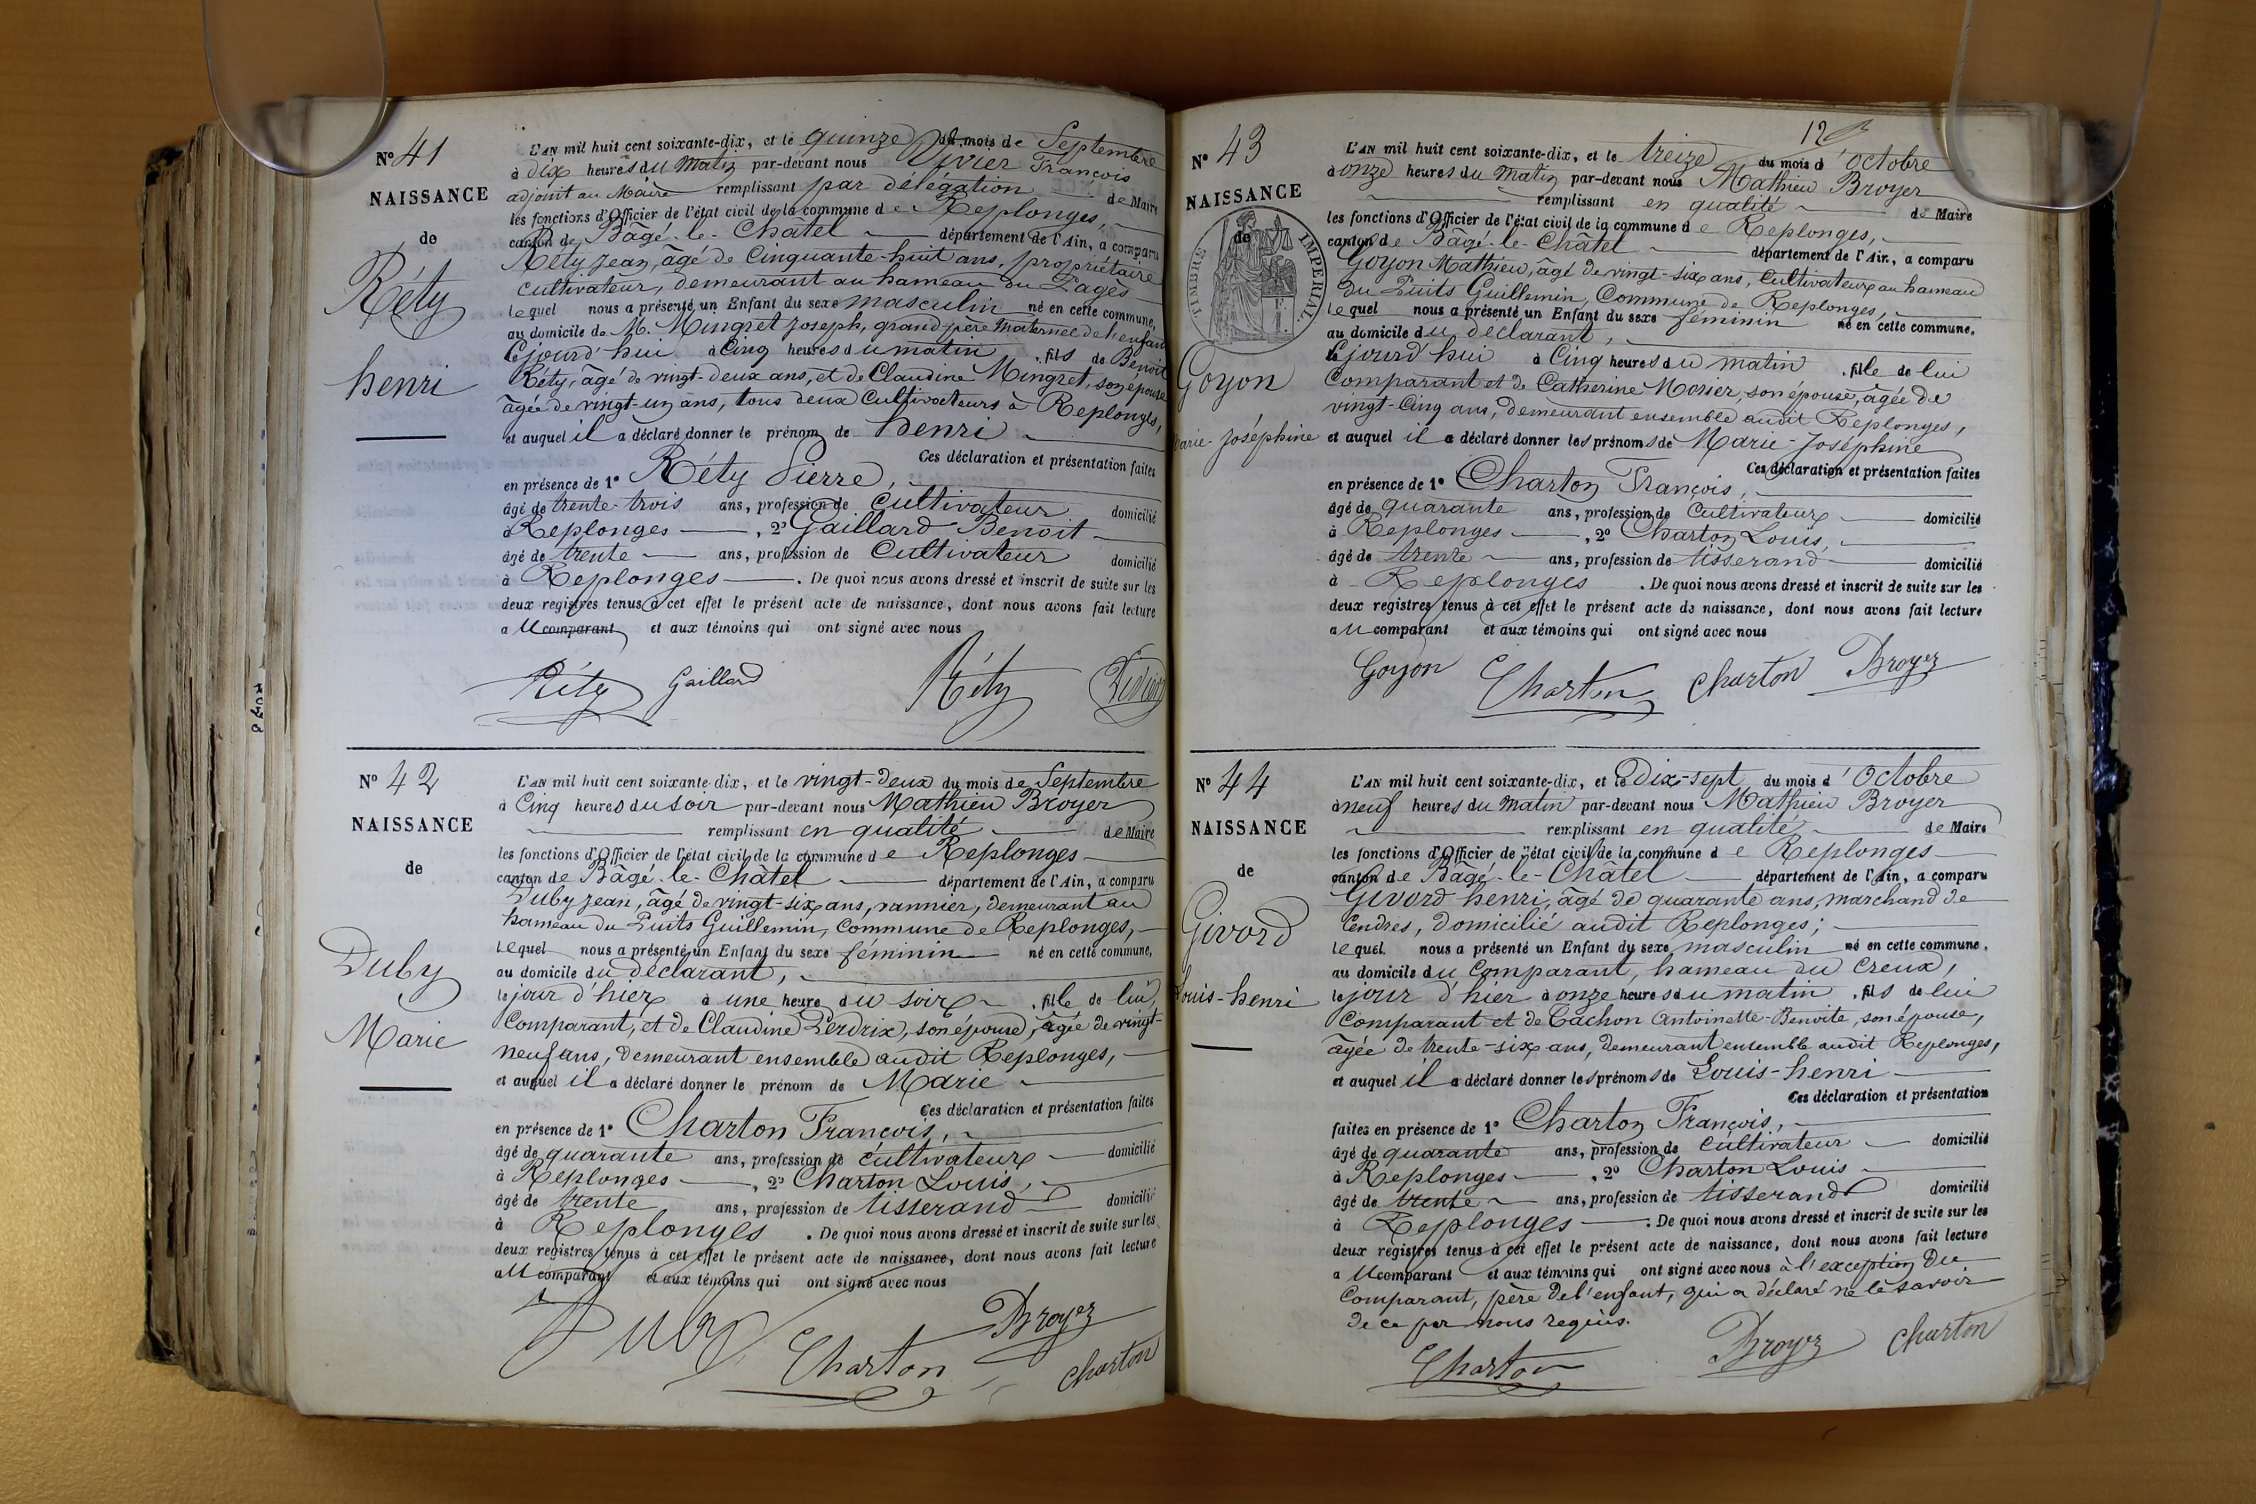 N° 41
NAISSANCE
de
Réty
henri
L'AN mil huit cent soixante-dix, et le quinze du mois de Septembre
à dix heures du Matin par-devant nous Divier François
adjoint au Maire remplissant par délégation de Maire
les fonctions d'Officier de l'état civil de la commune de Replonges,
canton de Bâgé-le-Châtel département de l'Ain, a comparu
Réty Jean, âgé de Cinquante-huit ans, propriétaire
cultivateur, demeurant au hameau du Pagès
lequel nous a présenté un Enfant du sexe masculin né en cette commune,
au domicile de M. Mingret Joseph, grand-père Maternel de l'enfant
lejourd'hui à Cinq heures du matin, fils de Benoit
Réty, âgé de vingt-deux ans, et de Claudine Mingret, son épouse
âgée de vingt-un ans, tous deux Cultivateurs à Replonges,
et auquel il a déclaré donner le prénom de henri
Ces déclaration et présentation faites
en présence de 1° Réty Pierre,
âgé de trente-trois ans, profession de Cultivateur domicilié
à Replonges, 2° Gaillard Benoit
âgé de trente ans, profession de Cultivateur domicilié
à Replonges. De quoi nous avons dressé et inscrit de suite sur les
deux registres tenus à cet effet le présent acte de naissance, dont nous avons fait lecture
au comparant et aux témoins qui ont signé avec nous
Réty Gaillard Réty
N° 42
NAISSANCE
de
Duby
Marie
L'AN mil huit cent soixante-dix, et le vingt-deux du mois de Septembre
à Cinq heures du soir par-devant nous Mathieu Broyer
remplissant en qualité de Maire
les fonctions d'Officier de l'état civil de la commune de Replonges
canton de Bâgé-le-Châtel département de l'Ain, a comparu
Duby Jean, âgé de vingt-six ans, vannier, demeurant au
hameau du Puits Guillemin, Commune de Replonges,
lequel nous a présenté un Enfant du sexe féminin né en cette commune,
au domicile du déclarant,
le jour d'hier à une heure du soir, fille de lui,
Comparant, et de Claudine Perdrix, son épouse, âgée de vingt-
neuf ans, demeurant ensemble audit Replonges,
et auquel il a déclaré donner le prénom de Marie
Ces déclaration et présentation faites
en présence de 1° Charton François,
âgé de quarante ans, profession de cultivateur domicilié
à Replonges, 2° Charton Louis,
âgé de trente ans, profession de tisserand domicilié
à Replonges. De quoi nous avons dressé et inscrit de suite sur les
deux registres tenus à cet effet le présent acte de naissance, dont nous avons fait lecture
au comparant et aux témoins qui ont signé avec nous
Duby Charton Broyer Charton
12
N° 43
NAISSANCE
de
TIMBRE IMPERIAL
Goyon
Marie-Joséphine
L'AN mil huit cent soixante-dix, et le treize du mois d'Octobre
à onze heures du Matin par-devant nous Mathieu Broyer
remplissant en qualité de Maire
les fonctions d'Officier de l'état civil de la commune de Replonges,
canton de Bâgé-le-Châtel département de l'Ain, a comparu
Goyon Mathieu, âgé de vingt-six ans, Cultivateur au hameau
du Puits Guillemin, Commune de Replonges,
lequel nous a présenté un Enfant du sexe féminin né en cette commune.
au domicile du déclarant,
lejourd'hui à Cinq heures du matin, fille de lui
Comparant et de Catherine Morier, son épouse, âgée de
vingt-Cinq ans, demeurant ensemble audit Replonges,
et auquel il a déclaré donner les prénoms de Marie-Joséphine
Ces déclaration et présentation faites
en présence de 1° Charton François,
âgé de quarante ans, profession de Cultivateur domicilié
à Replonges, 2° Charton Louis,
âgé de trente ans, profession de tisserand domicilié
à Replonges. De quoi nous avons dressé et inscrit de suite sur les
deux registres tenus à cet effet le présent acte de naissance, dont nous avons fait lecture
au comparant et aux témoins qui ont signé avec nous
Goyon Charton Charton Broyer
N° 44
NAISSANCE
de
Givord
Louis-henri
L'AN mil huit cent soixante-dix, et le Dix-sept du mois d'Octobre
à neuf heures du Matin par-devant nous Mathieu Broyer
remplissant en qualité de Maire
les fonctions d'Officier de l'état civil de la commune de Replonges
canton de Bâgé-le-Châtel département de l'Ain, a comparu
Givord henri, âgé de quarante ans, marchand de
Cendres, domicilié audit Replonges;
lequel nous a présenté un Enfant du sexe masculin né en cette commune.
au domicile du Comparant, hameau du Creux,
le jour d'hier à onze heures du matin, fils de lui
Comparant et de Cachon Antoinette-Benoite, son épouse,
âgée de trente-six ans, demeurant ensemble audit Replonges,
et auquel il a déclaré donner les prénoms de Louis-henri
Ces déclaration et présentation
faites en présence de 1° Charton François,
âgé de quarante ans, profession de Cultivateur domicilié
à Replonges, 2° Charton Louis
âgé de trente ans, profession de tisserand domicilié
à Replonges. De quoi nous avons dressé et inscrit de suite sur les
deux registres tenus à cet effet le présent acte de naissance, dont nous avons fait lecture
au comparant et aux témoins qui ont signé avec nous à l'exception du
Comparant, père de l'enfant, qui a déclaré ne le savoir
de ce par nous requis.
Charton Broyer Charton